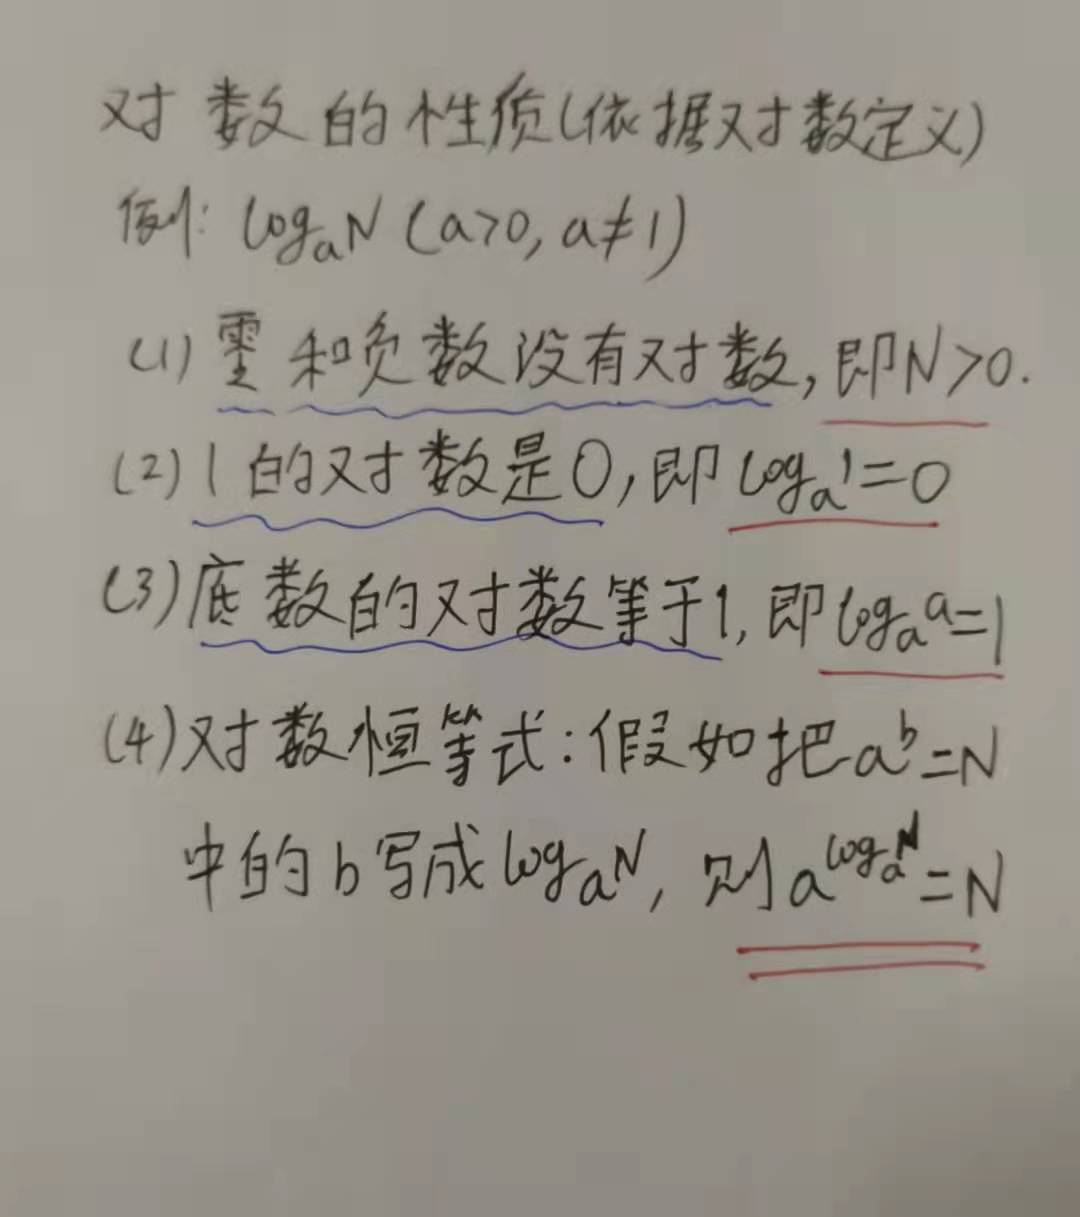 对数的性质(依据对数定义)
例: logₐN (a>0, a≠1)
(1) 零和负数没有对数, 即N>0.
(2) 1的对数是0, 即logₐ1=0
(3) 底数的对数等于1, 即logₐa=1
(4) 对数恒等式: 假如把a^b=N
中的b写成logₐN, 则a^(logₐN)=N